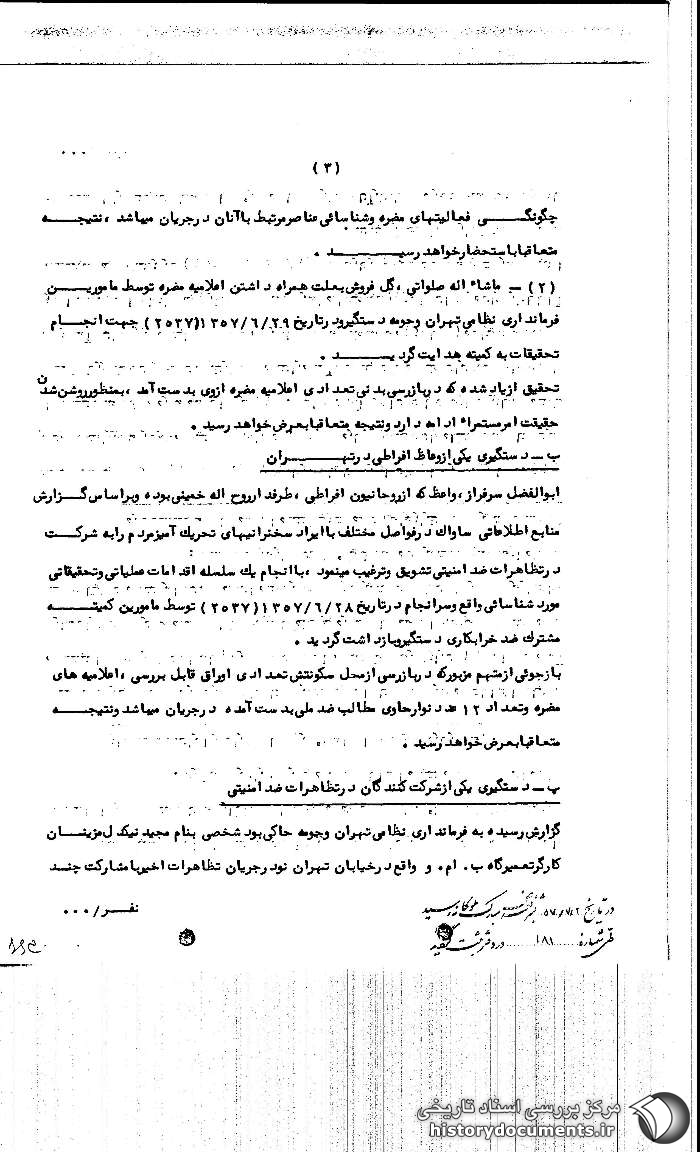 (۳)
چگونگی فعالیتهای مضره وشناسائی عناصر مرتبط باآنان درجریان میباشد ، نتیجه
متعاقبا باستحضار خواهد رسید .
(۲) - ماشاء اله صلواتی ، گل فروش بعلت همراه داشتن اعلامیه مضره توسط مامورین
فرمانداری نظامی تهران وحومه دستگیر ودر تاریخ ۱۳۵۷/۶/۲۹ (۲۵۳۷) جهت انجام
تحقیقات به کمیته هدایت گردید .
تحقیق ازیاد شده که دربازرسی بدنی تعدادی اعلامیه مضره ازوی بدست آمد ، بمنظور روشن شدن
حقیقت امر مستمرا" ادامه دارد ونتیجه متعاقبا بعرض خواهد رسید .
ب - دستگیری یکی ازوعاظ افراطی درتهران
ابوالفضل سرفراز ، واعظ که ازروحانیون افراطی ، طرفدار روح اله خمینی بوده وبراساس گزارش
منابع اطلاعاتی ساواک درفواصل مختلف باایراد سخنرانیهای تحریک آمیز مردم رابه شرکت
درتظاهرات ضد امنیتی تشویق وترغیب مینمود ، باانجام یک سلسله اقدامات عملیاتی وتحقیقاتی
مورد شناسائی واقع وسرانجام درتاریخ ۱۳۵۷/۶/۲۸ (۲۵۳۷) توسط مامورین کمیته
مشترک ضد خرابکاری دستگیر وبازداشت گردید .
بازجوئی ازمتهم مزبور که دربازرسی ازمحل سکونتش تعدادی اوراق قابل بررسی ، اعلامیه های
مضره وتعداد ۱۲ عدد نوار حاوی مطالب ضد ملی بدست آمده درجریان میباشد ونتیجه
متعاقبا بعرض خواهد رسید .
پ - دستگیری یکی ازشرکت کنندگان درتظاهرات ضد امنیتی
گزارش رسیده به فرمانداری نظامی تهران وحومه حاکی بود شخصی بنام مجید نیکدل مزینان
کارگر تعمیرگاه ب . ام . و واقع درخیابان تهران نو درجریان تظاهرات اخیر بامشارکت چند
نفر/۰۰۰
در تاریخ رسید
شماره ۱۸۱ در دفتر ثبت گردید
مرکز بررسی اسناد تاریخی
historydocuments.ir